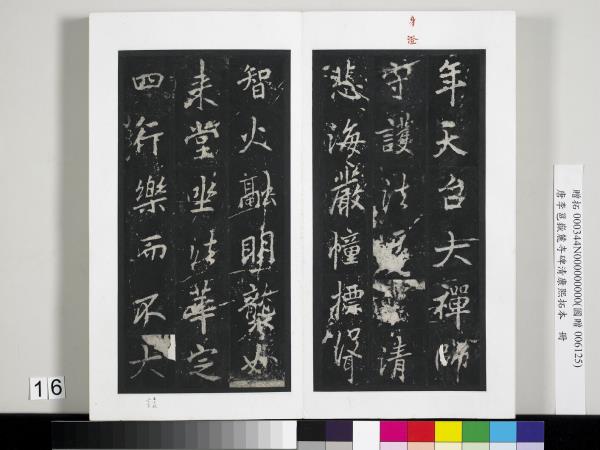 年天台大禪師
守護法請
悲海嚴幢標
智火融明襲如
來堂坐法華定
四行樂而不大
贈拓 000344N000000000(國贈 006125)
唐李邕嶽麓寺碑清康熙拓本 冊
16